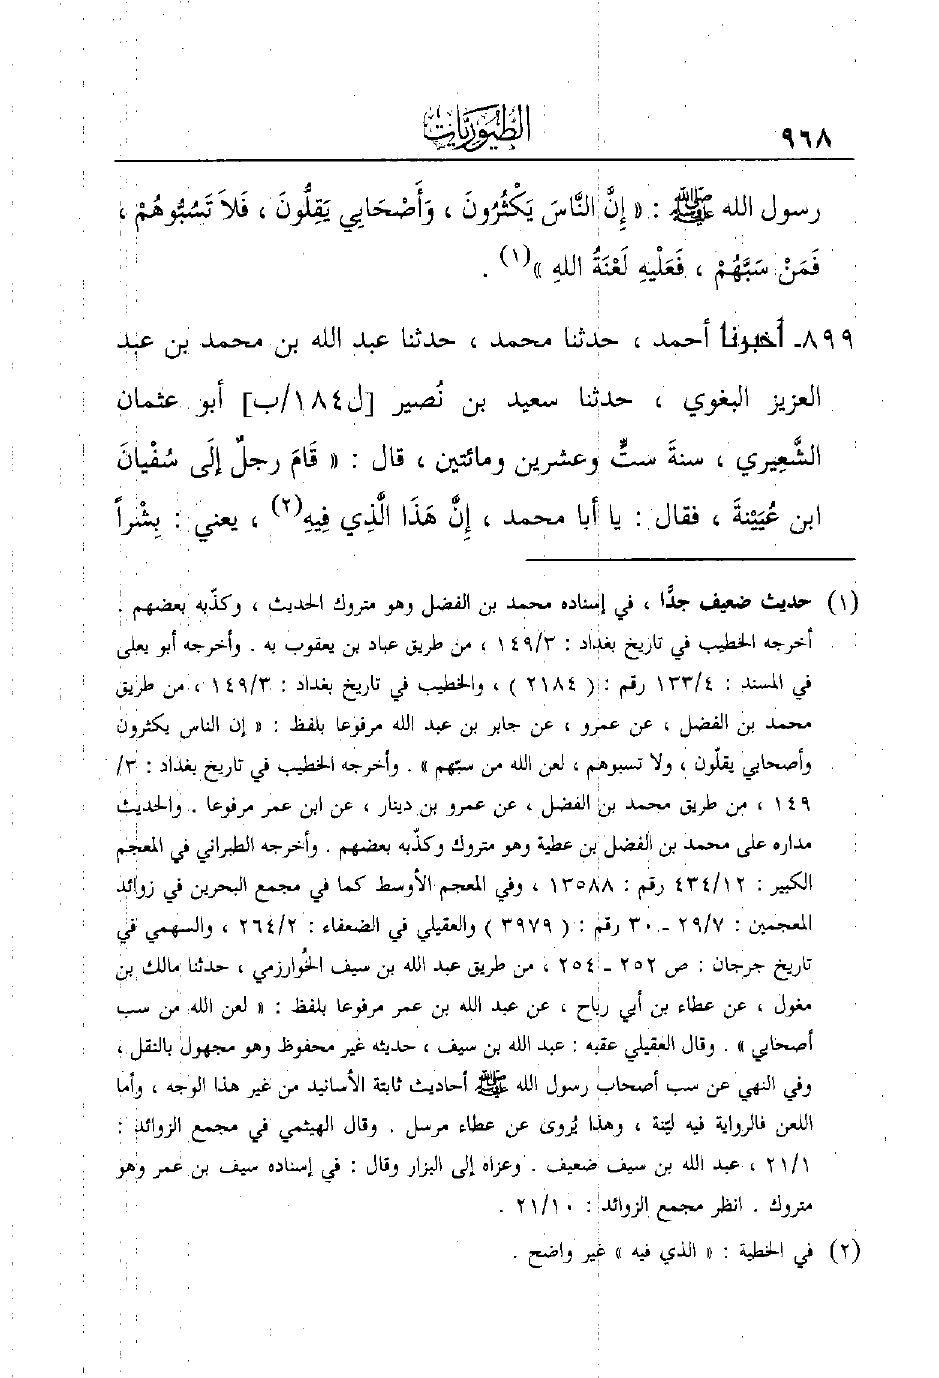 ٩٦٨
الطيوريات
رسول الله ﷺ : « إِنَّ النَّاسَ يَكْثُرُونَ ، وَأَصْحَابِي يَقِلُّونَ ، فَلاَ تَسُبُّوهُمْ ،
فَمَنْ سَبَّهُمْ ، فَعَلْيهِ لَعْنَةُ اللهِ »(١) .
٨٩٩- أخبرنا أحمد ، حدثنا محمد ، حدثنا عبد الله بن محمد بن عبد
العزيز البغوي ، حدثنا سعيد بن نُصير [ل١٨٤/ب] أبو عثمان
الشَّعِيري ، سنةَ ستٍّ وعشرين ومائتين ، قال : « قَامَ رجلٌ إِلَى سُفْيانَ
ابن عُيَيْنةَ ، فقال : يا أبا محمد ، إِنَّ هَذَا الَّذِي فِيهِ(٢) ، يعني : بِشْراً
(١) حديث ضعيف جدًّا ، في إسناده محمد بن الفضل وهو متروك الحديث ، وكذّبه بعضهم .
أخرجه الخطيب في تاريخ بغداد : ١٤٩/٣ ، من طريق عباد بن يعقوب به . وأخرجه أبو يعلى
في المسند : ١٣٣/٤ رقم : ( ٢١٨٤ ) ، والخطيب في تاريخ بغداد : ١٤٩/٣ ، من طريق
محمد بن الفضل ، عن عمرو ، عن جابر بن عبد الله مرفوعا بلفظ : « إن الناس يكثرون
وأصحابي يقلّون ، ولا تسبوهم ، لعن الله من سبّهم » . وأخرجه الخطيب في تاريخ بغداد : ٣/
١٤٩ ، من طريق محمد بن الفضل ، عن عمرو بن دينار ، عن ابن عمر مرفوعا . والحديث
مداره على محمد بن الفضل بن عطية وهو متروك وكذّبه بعضهم . وأخرجه الطبراني في المعجم
الكبير : ٤٣٤/١٢ رقم : ١٣٥٨٨ ، وفي المعجم الأوسط كما في مجمع البحرين في زوائد
المعجمين : ٢٩/٧ - ٣٠ رقم : ( ٣٩٧٩ ) والعقيلي في الضعفاء : ٢٦٤/٢ ، والسهمي في
تاريخ جرجان : ص ٢٥٢ - ٢٥٤ ، من طريق عبد الله بن سيف الخُوارزمي ، حدثنا مالك بن
مغول ، عن عطاء بن أبي رباح ، عن عبد الله بن عمر مرفوعا بلفظ : « لعن الله من سب
أصحابي » . وقال العقيلي عقبه : عبد الله بن سيف ، حديثه غير محفوظ وهو مجهول بالنقل ،
وفي النهي عن سب أصحاب رسول الله ﷺ أحاديث ثابتة الأسانيد من غير هذا الوجه ، وأما
اللعن فالرواية فيه ليّنة ، وهذا يُروى عن عطاء مرسل . وقال الهيثمي في مجمع الزوائد :
٢١/١ ، عبد الله بن سيف ضعيف . وعزاه إلى البزار وقال : في إسناده سيف بن عمر وهو
متروك . انظر مجمع الزوائد : ٢١/١٠ .
(٢) في الخطية : « الذي فيه » غير واضح .